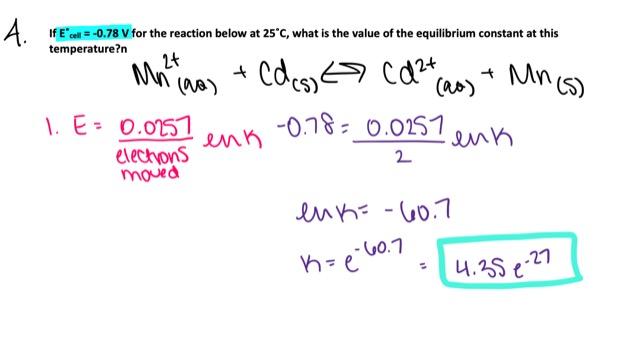 A. If E°cell = -0.78 V for the reaction below at 25°C, what is the value of the equilibrium constant at this
temperature?n
Mn²⁺(aq) + Cd(s) ⟷ Cd²⁺(aq) + Mn(s)
1. E = 0.0257 / electrons moved lnK
-0.78 = 0.0257 / 2 lnK
lnK = -60.7
K = e^-60.7 = 4.35 e^-27